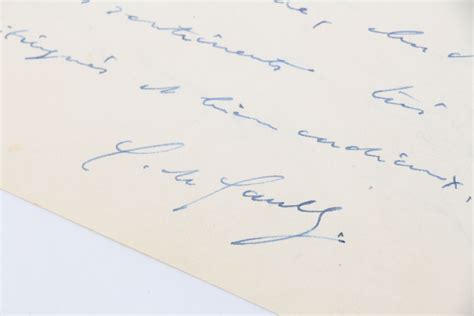 sentiments très
tingués et bien cordiaux,
C. de Gaulle.